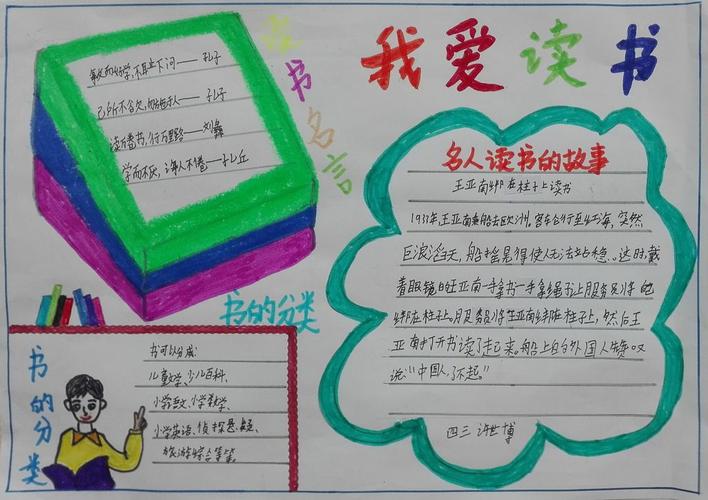 我爱读书
读书名言
敏而好学,不耻下问——孔子
己所不欲,勿施于人——孔子
读万卷书,行万里路——刘彝
学而不厌,诲人不倦——孔丘
书的分类
书的分类
书可以分成:
儿童文学、少儿百科、
小学语文、小学数学、
小学英语、侦探悬疑、
旅游综合等第
名人读书的故事
王亚南绑在柱子上读书
1933年,王亚南乘船去欧洲。客车行至红海,突然
巨浪滔天,船摇晃得使人无法站稳。这时,戴
着眼镜的王亚南一手拿书一手拿绳子让服务员将他
绑在柱子上,服务员将王亚南绑在柱子上,然后王
亚南打开书读了起来。船上的外国人赞叹
说:“中国人,了不起。”
四三 许世博